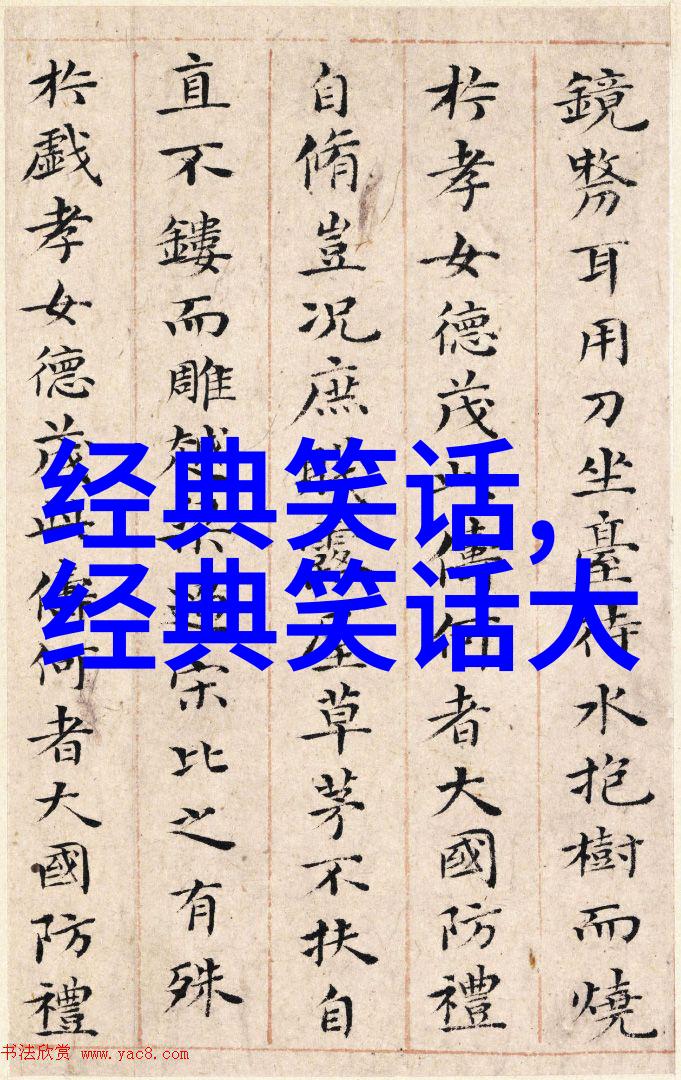 鏡剺耳用刀坐臺待水抱樹而燒
於孝女德茂此儔何者大國防禮
自脩豈況庶賤露屋草茅不扶自
直不鏤而雕越梁過宋比之有殊
於戲孝女德茂此儔何者大國防禮
经典笑话,
经典笑话大
书法欣赏 www.yac8.com